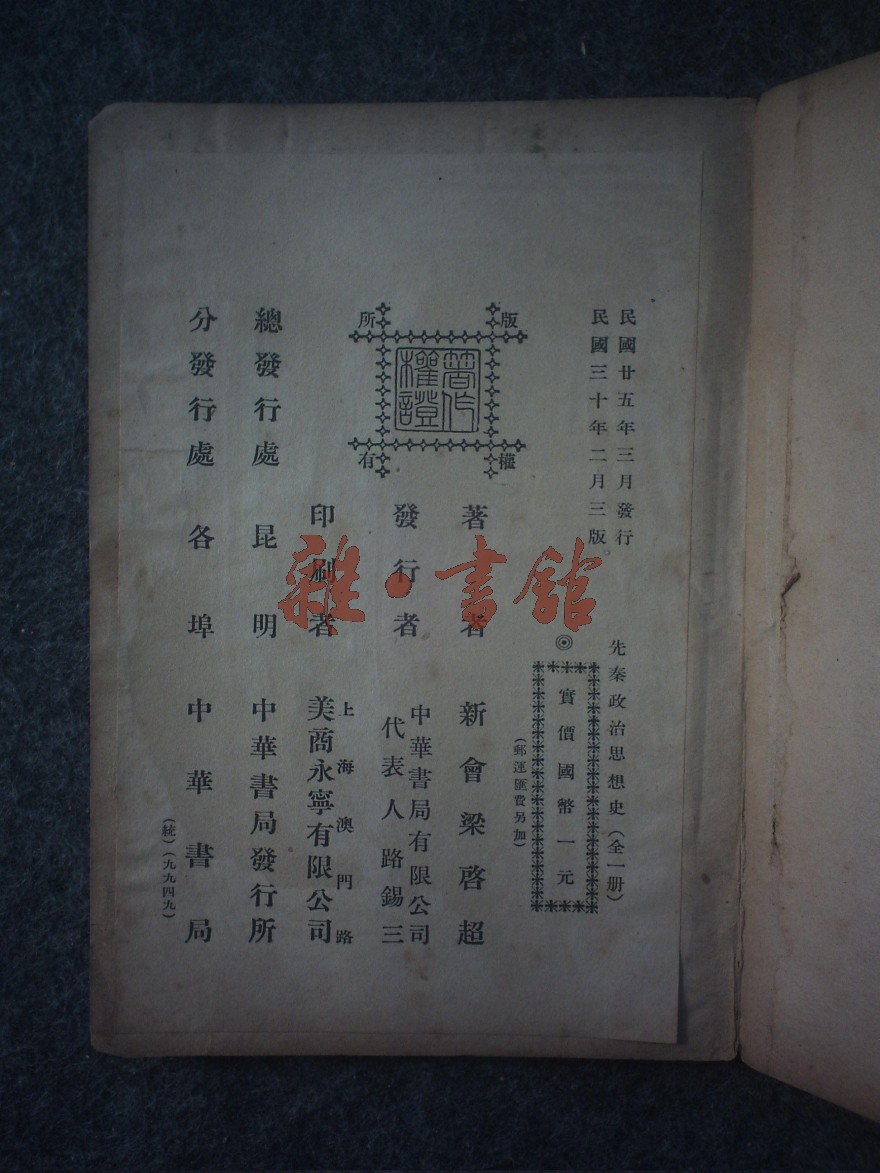 民國廿五年三月發行
民國三十年二月三版
先秦政治思想史（全一册）
◎實價國幣一元
（郵運匯費另加）
版權所有
著作權證
著者 新會梁啓超
發行者 中華書局有限公司
代表人路錫三
印刷者 上海澳門路
美商永寧有限公司
總發行處 昆明 中華書局發行所
分發行處 各埠 中華書局
（統）（九九四九）
雜·書館